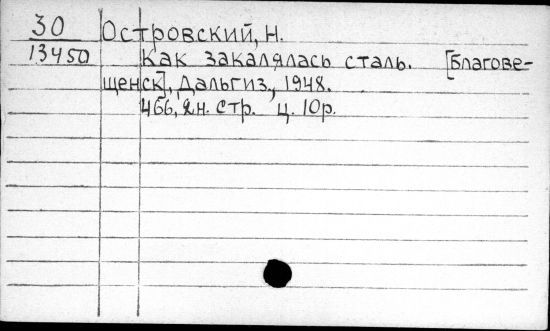 30 Островский, Н.
13450 Как закалялась сталь. [Благове-
щенск], Дальгиз, 1948.
466, 2н. стр. ц. 10р.